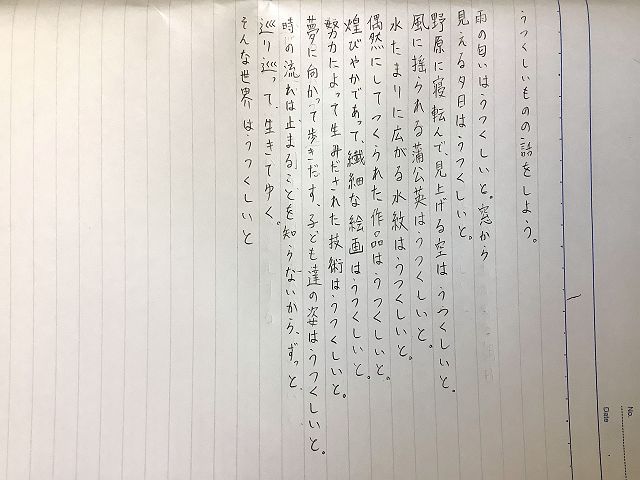 うつくしいものの話をしよう。
雨の匂いはうつくしいと。窓から
見える夕日はうつくしいと。
野原に寝転んで見上げる空はうつくしいと。
風に揺られる蒲公英はうつくしいと。
水たまりに広がる水紋はうつくしいと。
偶然にしてつくられた作品はうつくしいと。
煌びやかであって、繊細な絵画はうつくしいと。
努力によって生みだされた技術はうつくしいと。
夢に向かって歩きだす、子ども達の姿はうつくしいと。
時の流れは、止まることを知らないから、ずっと
巡り巡って、生きてゆく。
そんな世界はうつくしいと
No.
Date